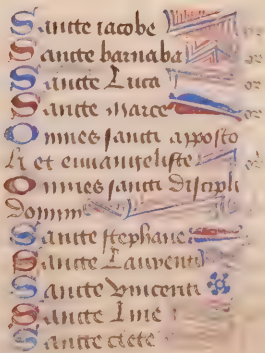 Sancte iacobe
Sancte barnaba
Sancte Luca or
Sancte Marce or
Omnes sancti apposto
li et euuangeliste or
Omnes sancti discipli
Domini
Sancte stephane
Sancte Laurenti
Sancte vincenti
Sancte Line
Sancte clete